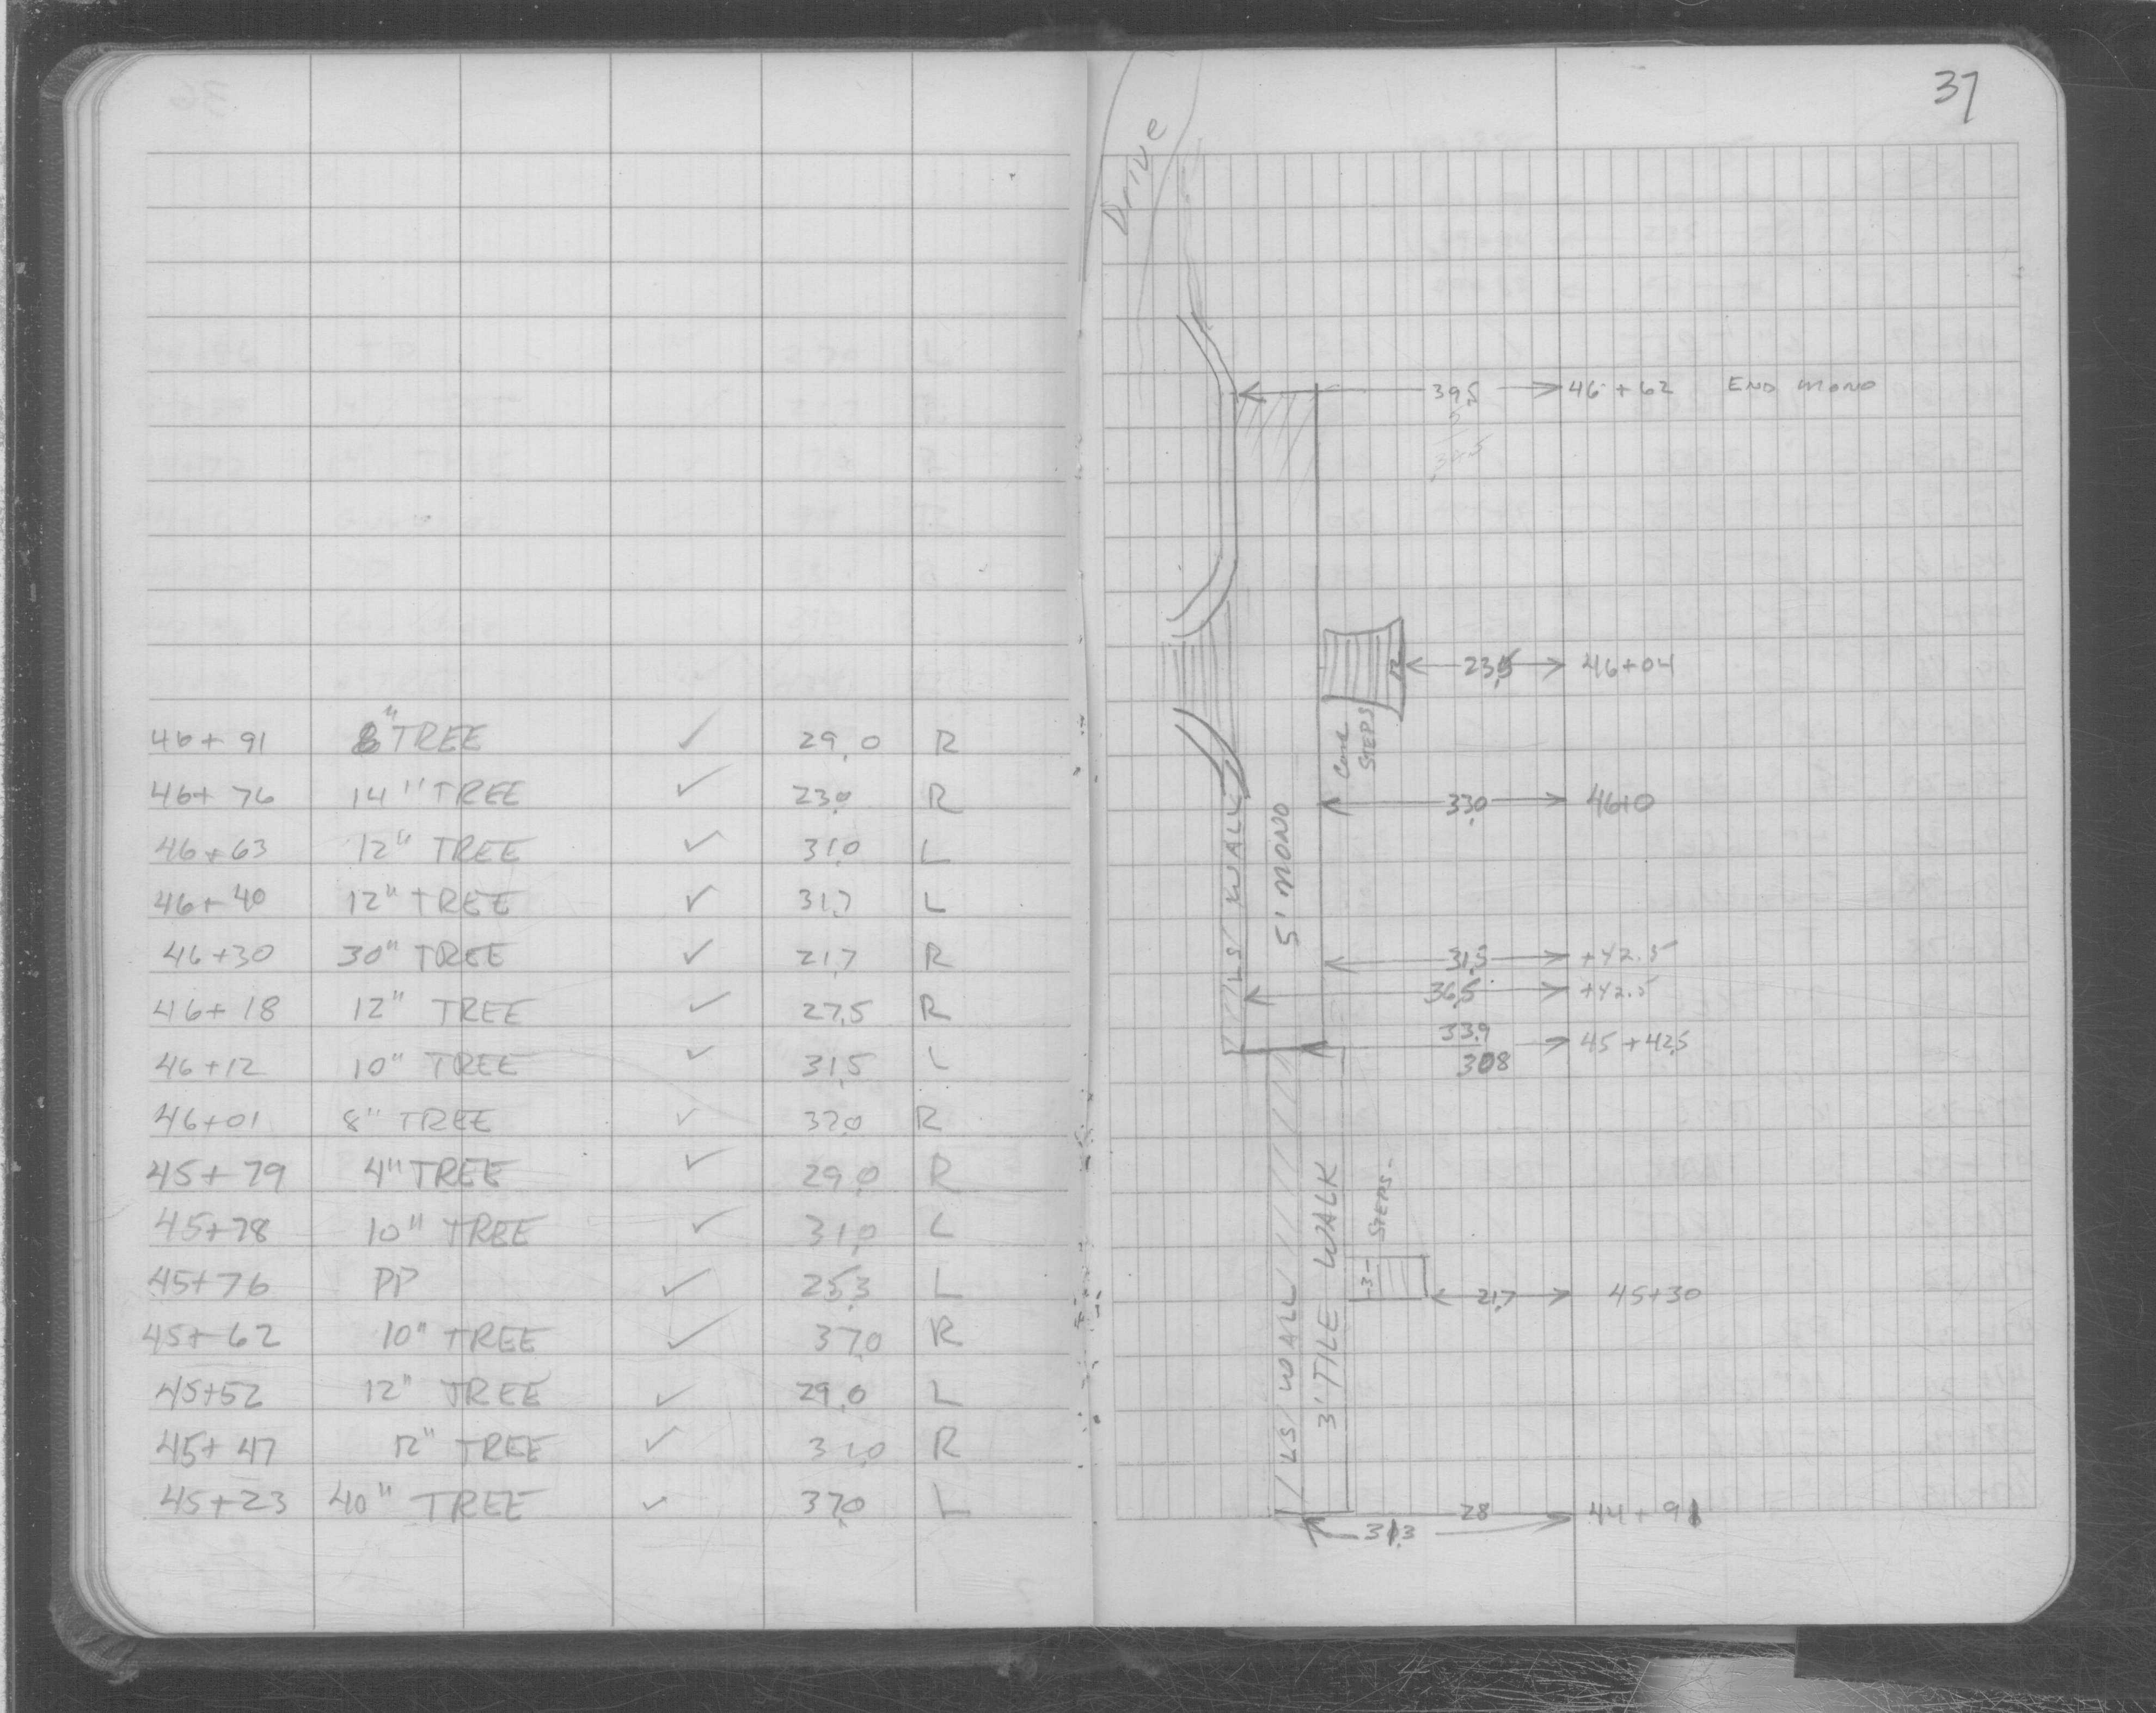 46+91 8" TREE ✓ 29.0 R
46+76 14" TREE ✓ 23.0 R
46+63 12" TREE ✓ 31.0 L
46+40 12" TREE ✓ 31.7 L
46+30 30" TREE ✓ 21.7 R
46+18 12" TREE ✓ 27.5 R
46+12 10" TREE ✓ 31.5 L
46+01 8" TREE ✓ R
45+79 4" TREE ✓ 29.0 R
45+78 10" TREE ✓ 31.0 L
45+76 PP ✓ 25.3 L
45+62 10" TREE ✓ 37.0 R
45+52 12" TREE ✓ 29.0 L
45+47 12" TREE ✓ 31.0 R
45+23 40" TREE ✓ 37.0 L
37
Drive
39.5 46+62 END MONO
5
34.5
23.5 46+04
CONC
STEPS
33.0 46+0
LS WALL
5' MONO
31.5 +42.5
36.5 +42.5
33.9 45+42.5
30.8
STEPS
3
21.7 45+30
LS WALL
3' TILE WALK
28 44+91
31.3